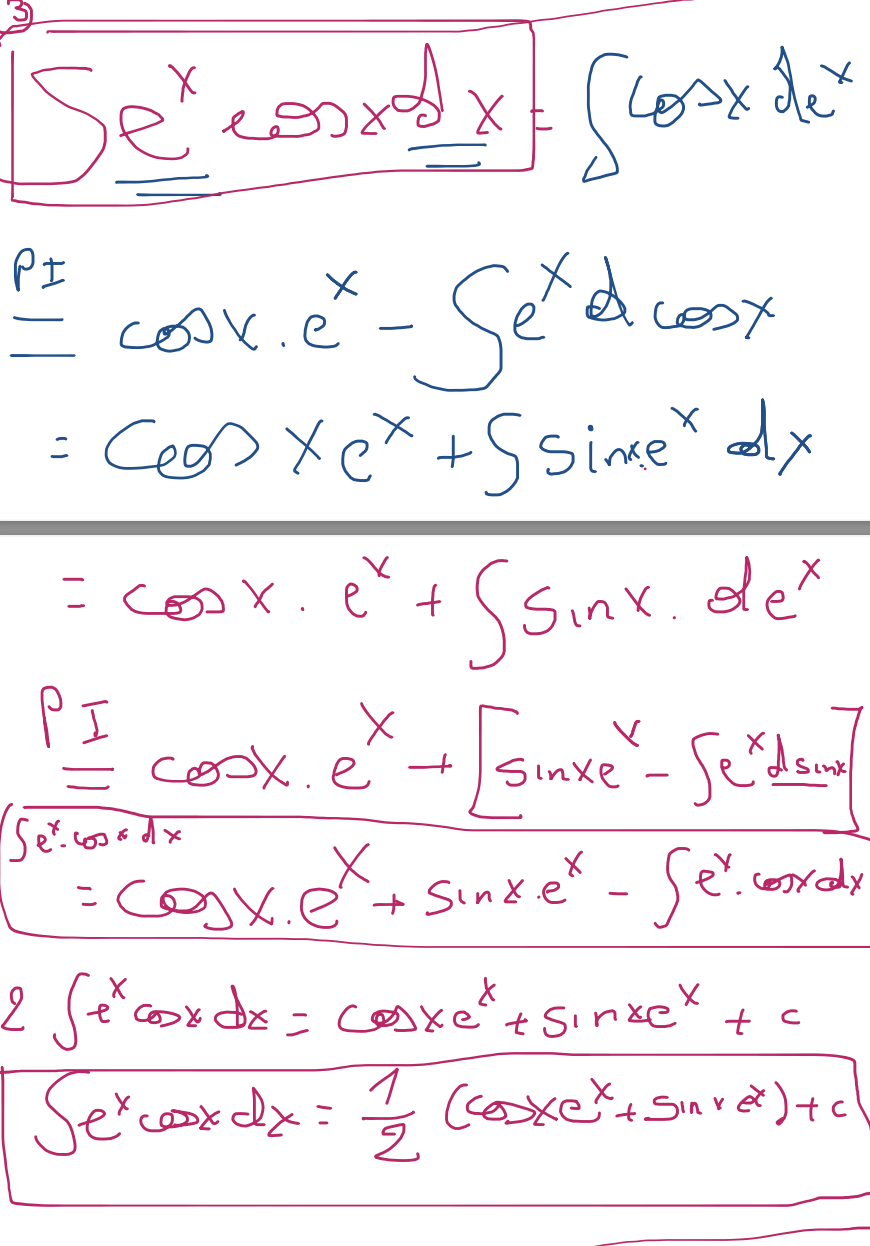 3
∫ e^x cos x d x = ∫ cos x d e^x
PI
= cos x . e^x - ∫ e^x d cos x
= cos x e^x + ∫ sin x . e^x dx
= cos x . e^x + ∫ sin x . d e^x
PI
= cos x . e^x + [ sin x e^x - ∫ e^x d sin x ]
∫ e^x . cos x dx
= cos x . e^x + sin x . e^x - ∫ e^x . cos x dx
2 ∫ e^x cos x dx = cos x e^x + sin x e^x + c
∫ e^x cos x dx = 1/2 (cos x e^x + sin x e^x) + c